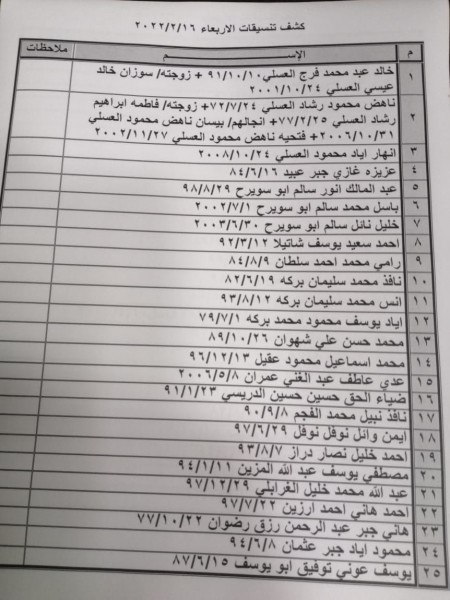 كشف تنسيقات الاربعاء ٢٠٢٢/٢/١٦
م الإســـم ملاحظات
١ خالد عبد محمد فرج العسلي ٩١/١٠/١٠ + زوجته/ سوزان خالد
عيسي العسلي ٢٠٠١/١٠/٢٤
٢ ناهض محمود رشاد العسلي ٧٢/٧/٢٤+ زوجته/ فاطمه ابراهيم
رشاد العسلي ٧٧/٢/٢٥+ انجالهم/ بيسان ناهض محمود العسلي
٢٠٠٦/١٠/٣١+ فتحيه ناهض محمود العسلي ٢٠٠٢/١١/٢٧
٣ انهار اياد محمود العسلي ٢٠٠٨/١٠/٢٤
٤ عزيزه غازي جبر عبيد ٨٤/٦/١٦
٥ عبد المالك انور سالم ابو سويرح ٩٨/٨/٢٩
٦ باسل محمد سالم ابو سويرح ٢٠٠٢/٧/١
٧ خليل نائل سالم ابو سويرح ٢٠٠٣/٦/٣٠
٨ احمد سعيد يوسف شاتيلا ٩٢/٣/١٢
٩ رامي محمد احمد سلطان ٨٤/٨/٩
١٠ نافذ محمد سليمان بركه ٨٢/٦/١٩
١١ انس محمد سليمان بركه ٩٣/٨/١٢
١٢ اياد يوسف محمود محمد بركه ٧٩/٧/١
١٣ محمد حسن علي شهوان ٨٩/١٠/٢٦
١٤ محمد اسماعيل محمود عقيل ٩٦/١٢/١٣
١٥ عدي عاطف عبد الغني عمران ٢٠٠٦/٥/٨
١٦ ضياء الحق حسين حسين الدريسي ٩١/١/٢٣
١٧ نافذ نبيل محمد الفجم ٩٠/٩/٨
١٨ ايمن وائل نوفل نوفل ٩٧/٦/٢٩
١٩ احمد خليل نصار دراز ٩٣/٨/٧
٢٠ مصطفي يوسف عبد الله المزين ٩٤/١/١١
٢١ عبد الله محمد خليل الغرابلي ٩٧/١٢/٢٩
٢٢ احمد هاني احمد ارزين ٩٧/٧/٢٢
٢٣ هاني جبر عبد الرحمن رزق رضوان ٧٧/١٠/٢٢
٢٤ محمود اياد جبر عثمان ٩٤/٦/٨
٢٥ يوسف عوني توفيق ابو يوسف ٨٧/٦/١٥